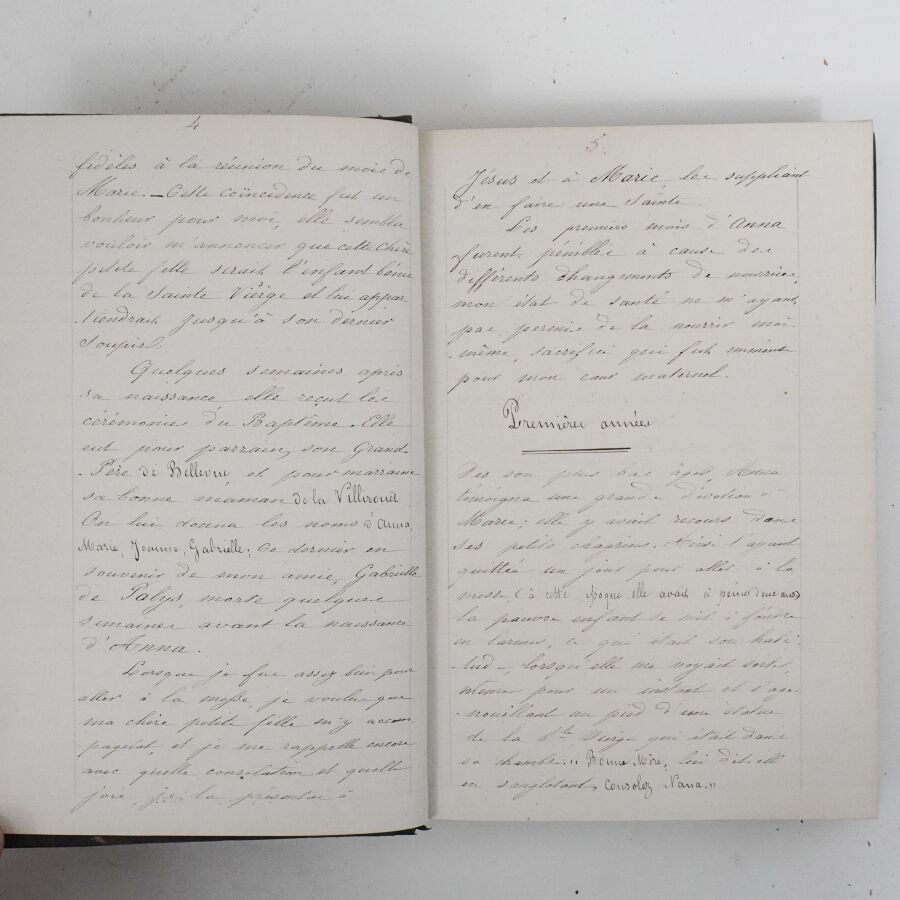 4
fidèles à la réunion du mois de
Marie. — Cette coïncidence fut un
bonheur pour moi, elle sembla
vouloir m'annoncer que cette chère
petite fille serait l'enfant bénie
de la Sainte Vierge et lui appar-
tiendrait jusqu'à son dernier
soupir.
Quelques semaines après
sa naissance elle reçut les
cérémonies du Baptême. Elle
eut pour parrain, son Grand-
-Père de Bellevue, et pour marraine
sa bonne maman de la Villirouët
On lui donna les noms d'Anna,
Marie, Jeanne, Gabrielle; Ce dernier en
souvenir de mon amie, Gabrielle
de Palys, morte quelques
semaines avant la naissance
d'Anna.
Lorsque je fus assez bien pour
aller à la messe je voulus que
ma chère petite fille m'y accom-
-pagnat, et je me rappelle encore
avec quelle consolation et quelle
joie, je la présentai à
5.
Jésus et à Marie, les suppliant
d'en faire une Sainte.
Les premiers mois d'Anna
furent pénibles à cause des
différents changements de nourrices,
mon état de santé ne m'ayant
pas permis de la nourrir moi-
-même, sacrifice qui fut immense
pour mon cœur maternel.
Premières années
Dès son plus bas âge, Anna
témoigna une grande dévotion à
Marie; elle y avait recours dans
ses petits chagrins. Ainsi l'ayant
quittée un jour pour aller à la
messe, (à cette époque elle avait à peine deux ans)
la pauvre enfant se mit à fondre
en larmes, ce qui était son habi-
-tude, lorsqu'elle me voyait sortir,
même pour un instant et s'age-
-nouillant au pied d'une statue
de la Ste Vierge qui était dans
sa chambre: "Bonne Mère, lui dit-elle
en sanglotant, consolez Nana."